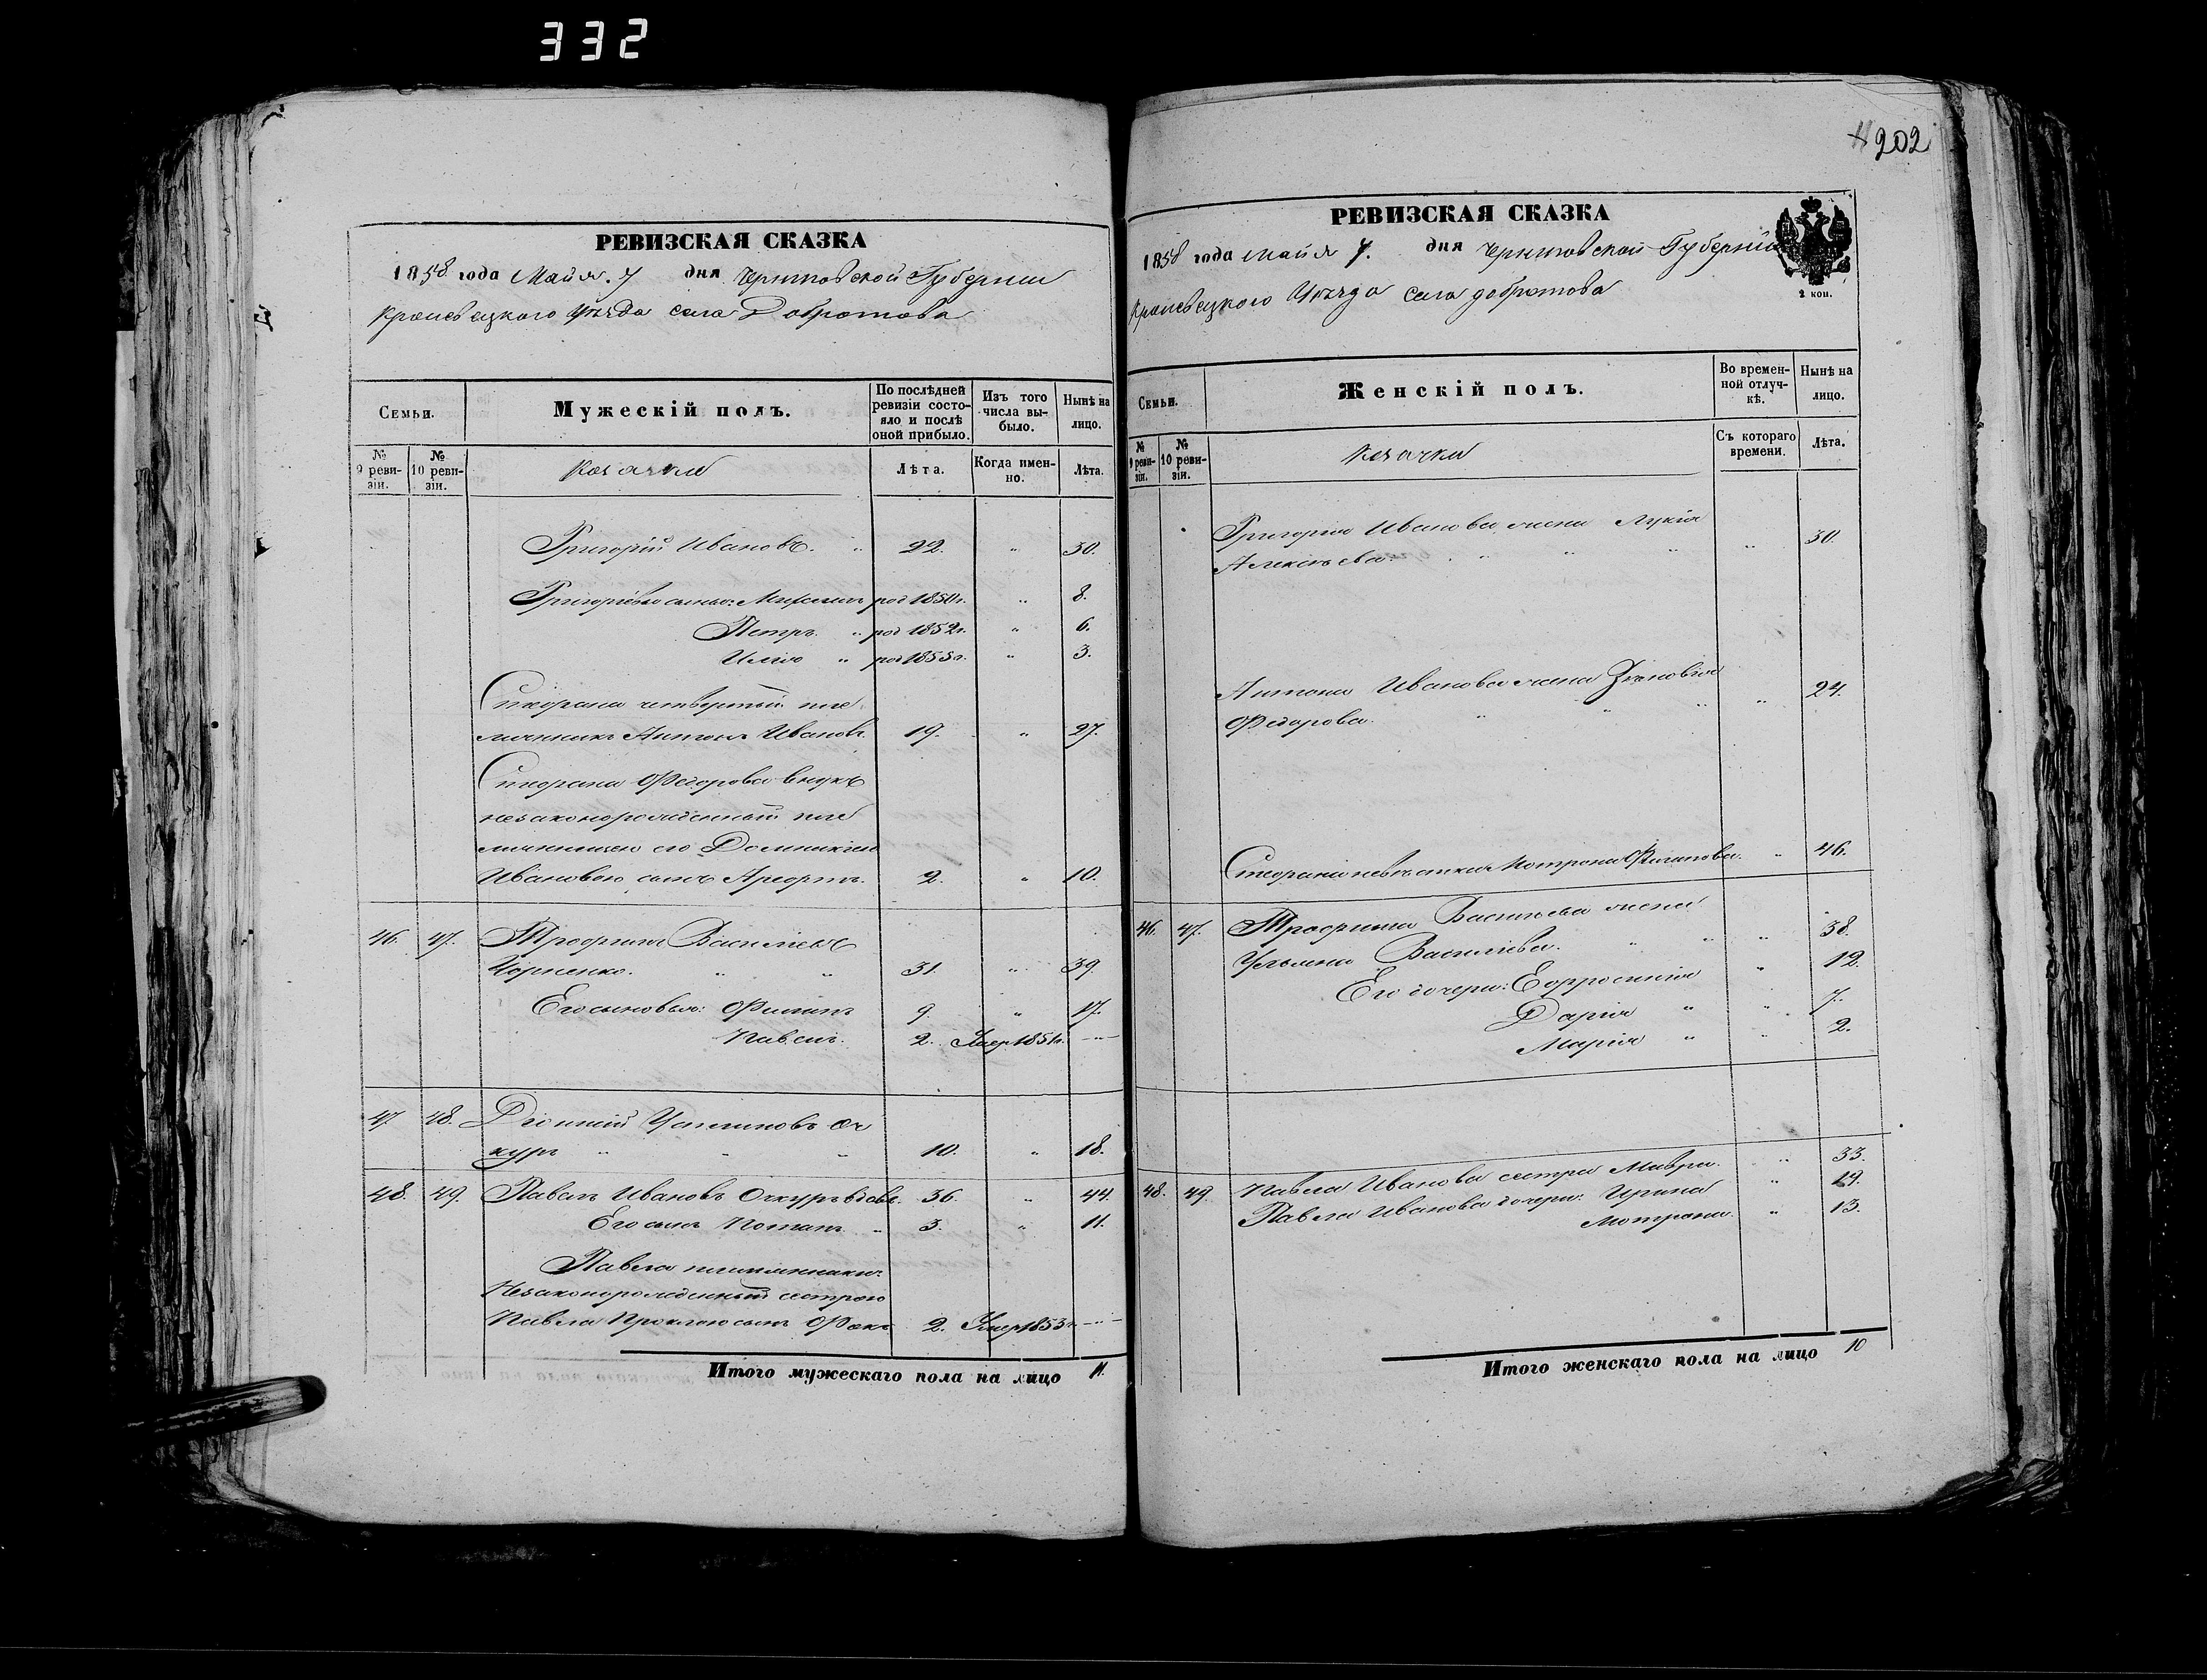 332
РЕВИЗСКАЯ СКАЗКА
1858 года Майя 7 дня Черниговской Губернии
Кролевецкого Уѣзда села Добротова
Семьи.
Мужескій полъ.
По послѣдней ревизіи состояло и послѣ оной прибыло.
Изъ того числа выбыло.
Нынѣ на лицо.
№ 9 ревизіи.
№ 10 ревизіи.
Козачки
Лѣта.
Когда именно.
Лѣта.
Григорій Ивановъ. 22. " 30.
Григорьевы сыновья: Михаилъ род 1850г. " 8.
Петръ " род 1852г. " 6.
Илія " род 1855г. " 3.
четвертый пле
мянникъ Антонъ Ивановъ. 19. " 27.
Федорова внукъ
незаконорожденный пле
мянницею его Домникіею
Ивановою сынъ 2. " 10.
46. 47. Трофимъ Васильевъ
Чорненко. " " 31. " 39.
Его сыновья: Филипъ 9. " 17.
Павелъ. 2. Умер 1851г. — " —
47 48. Діонисій Устиновъ Оч
куръ " " " 10. " 18.
48. 49. Павелъ Ивановъ 36. " 44.
Его сынъ Потапъ " 3. " 11.
Павла племянникъ
Незаконорожденный сестрою
Павла сынъ 2. Умер 1853г. — " —
Итого мужескаго пола на лицо 11.
202
РЕВИЗСКАЯ СКАЗКА
1858 года майя 7. дня Черниговской Губерніи
2 коп.
Кролевецкого Уѣзда села добротова
Семьи.
Женскій полъ.
Во временной отлучкѣ.
Нынѣ на лицо.
№ 9 ревизіи.
№ 10 ревизіи.
Козачки
Съ котораго времени.
Лѣта.
Григорія Иванова жена Лукія
Алексѣева. " " " " 30.
Антона Иванова жена Зѣновія
Федорова. " " " " 24.
невѣстка Мотрона Филипова. " 46.
46. 47. Трофима Васильева жена
Ульяна Васильева. " " " 38.
Его дочери: Ефросинія " 12.
Дарія " " 7.
Марія " " 2.
48. 49. Павла Иванова сестра Мавра. " 33.
Павла Иванова дочери: Ирина " 19.
Мотрона. " 13.
Итого женскаго пола на лицо 10